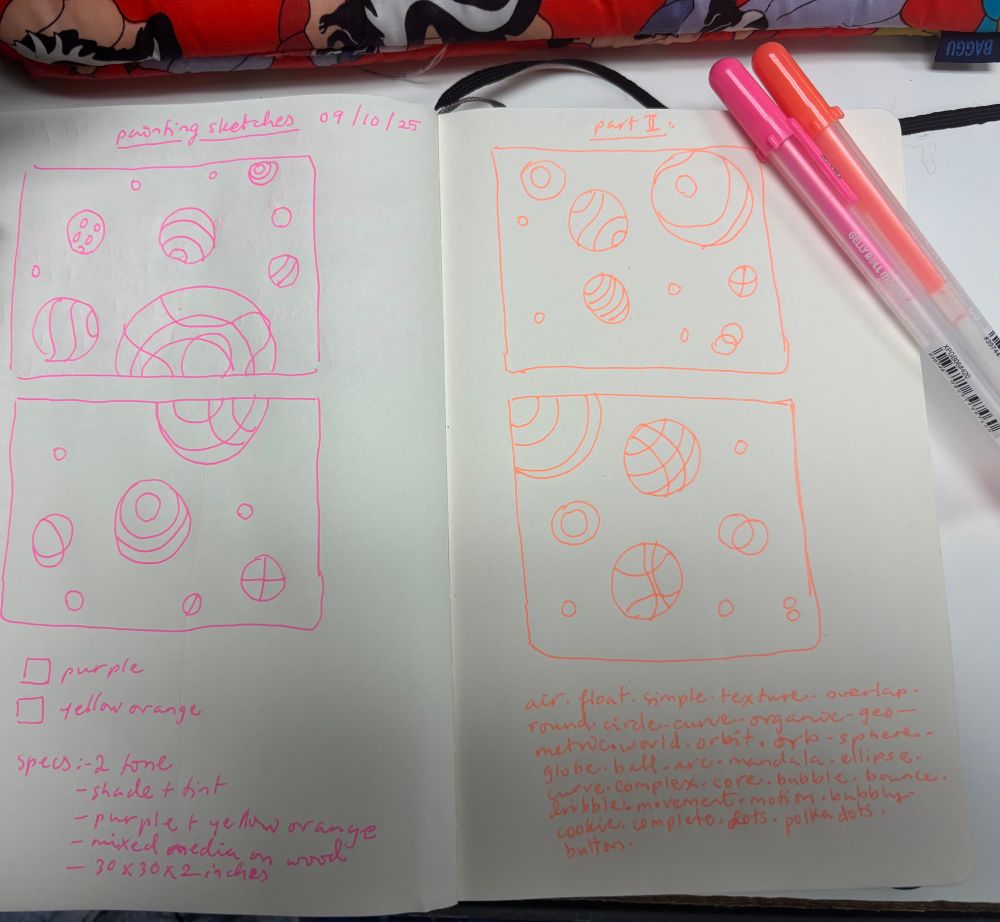 BAGGU
painting sketches 09/10/25
purple
yellow orange
specs:- 2 tone
- shade + tint
- purple + yellow orange
- mixed media on wood
- 30 x 30 x 2 inches
part II:
air. float. simple. texture. overlap.
round. circle. curve. organic. geo-
metric. world. orbit. orb. sphere.
globe. ball. arc. mandala. ellipse.
curve. complex. core. bubble. bounce.
dribble. movement. motion. bubbly.
cookie. complete. dots. polka dots.
button.
GELLY ROLL